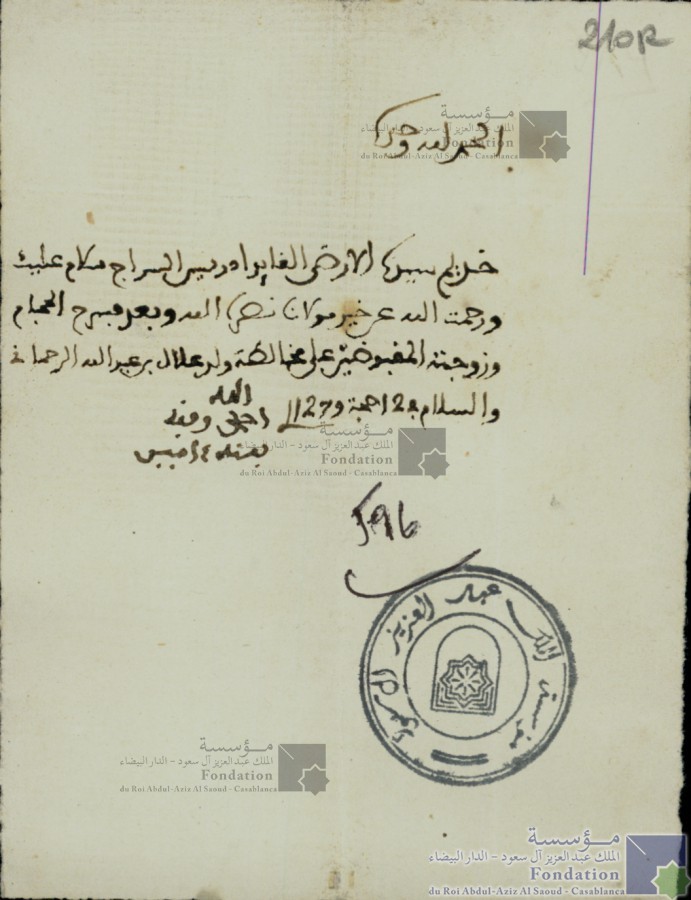 210R
الحمد لله وحده
خديم سيدنا الارضى القايد ادريس السراج سلام عليك
ورحمت الله عن خير مولانا نصره الله وبعد فسرح الحجام
وزوجته المقبوضين على مخالطة ولد علال بن عبد الله الرحماني
والسلام في 2 حجة 127
الله
596
مؤسسة الملك عبد العزيز
مؤسسة
الملك عبد العزيز آل سعود - الدار البيضاء
Fondation
du Roi Abdul-Aziz Al Saoud - Casablanca
مؤسسة
الملك عبد العزيز آل سعود - الدار البيضاء
Fondation
du Roi Abdul-Aziz Al Saoud - Casablanca
مؤسسة
الملك عبد العزيز آل سعود - الدار البيضاء
Fondation
du Roi Abdul-Aziz Al Saoud - Casablanca
مؤسسة
الملك عبد العزيز آل سعود - الدار البيضاء
Fondation
du Roi Abdul-Aziz Al Saoud - Casablanca